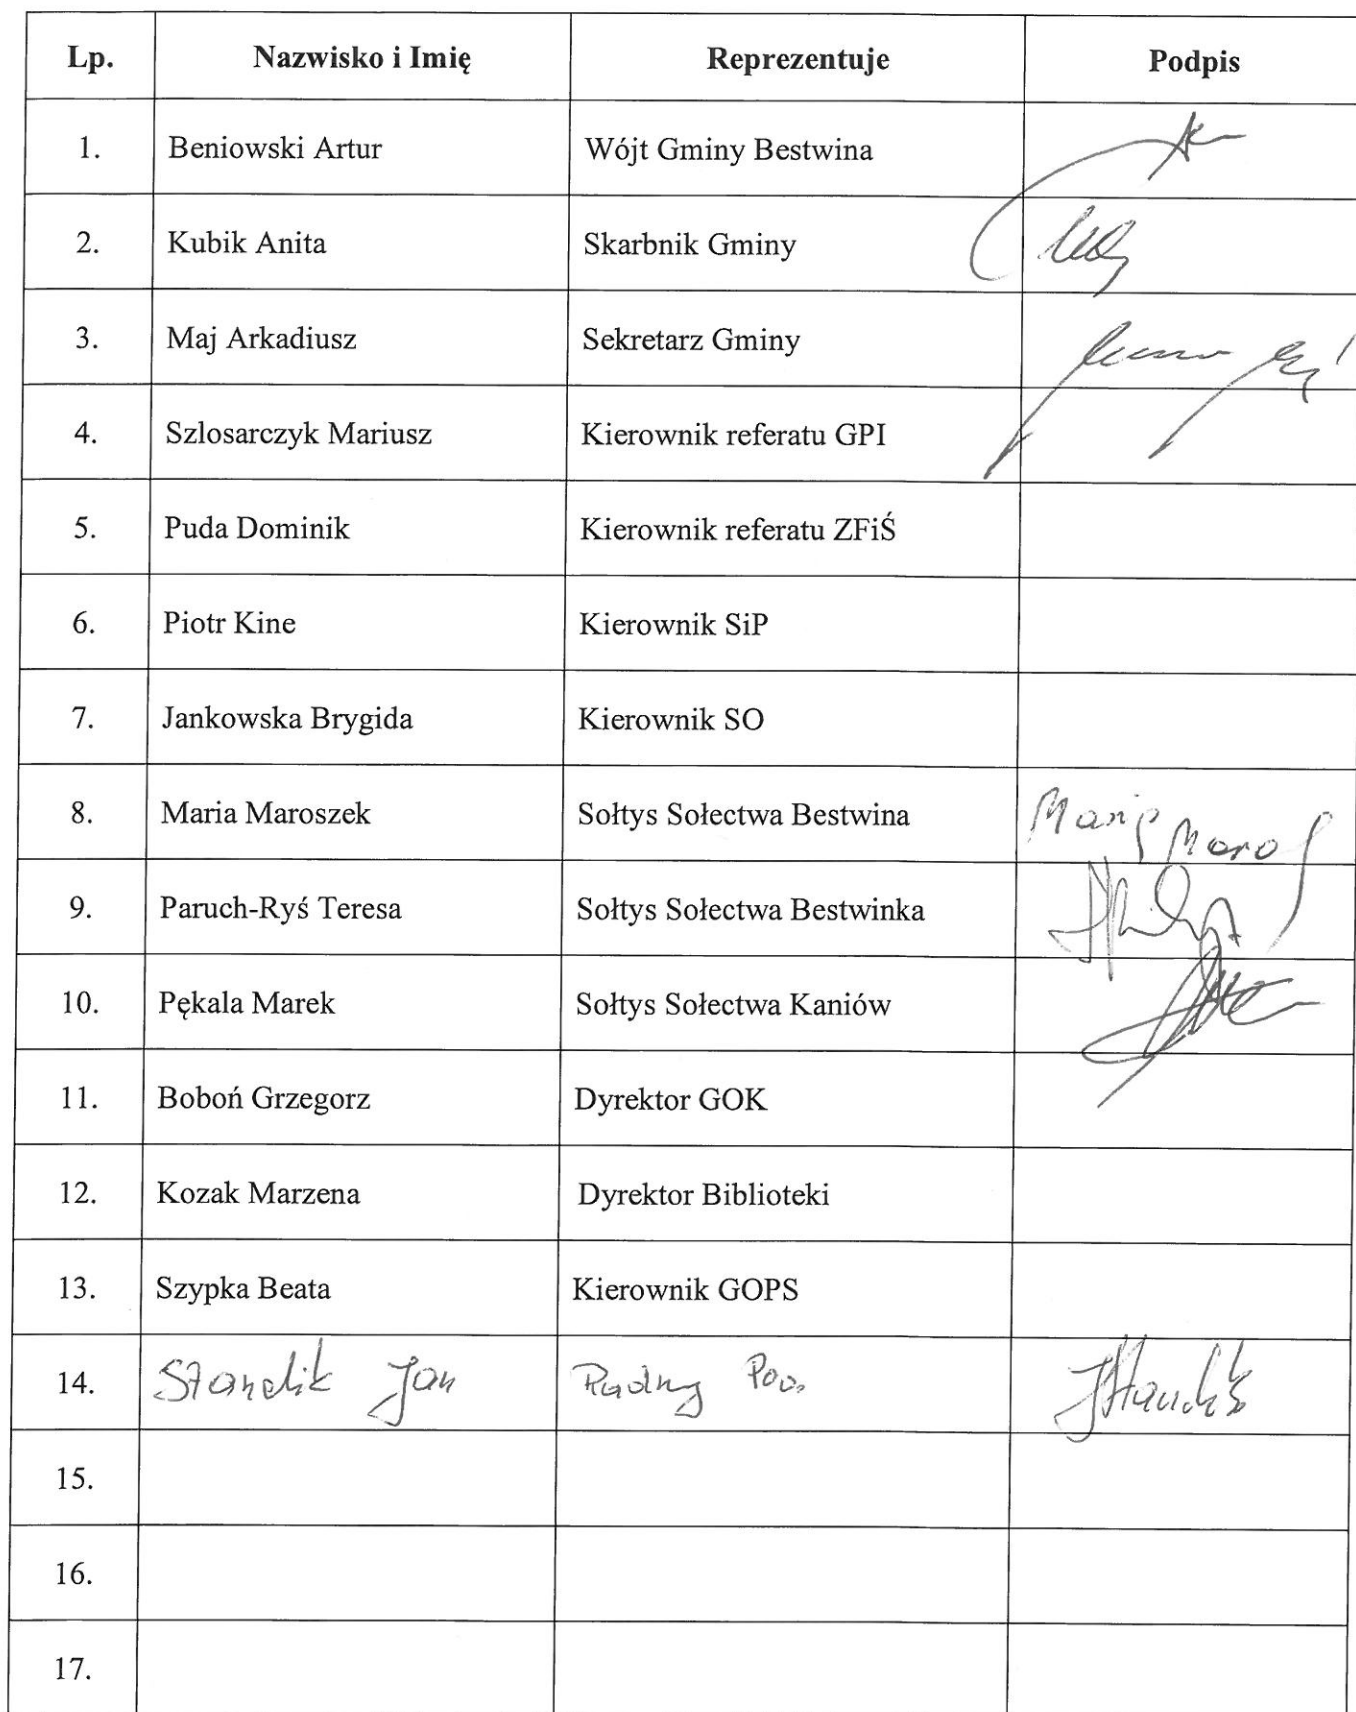 Lp. Nazwisko i Imię Reprezentuje Podpis
1. Beniowski Artur Wójt Gminy Bestwina
2. Kubik Anita Skarbnik Gminy
3. Maj Arkadiusz Sekretarz Gminy
4. Szlosarczyk Mariusz Kierownik referatu GPI
5. Puda Dominik Kierownik referatu ZFiŚ
6. Piotr Kine Kierownik SiP
7. Jankowska Brygida Kierownik SO
8. Maria Maroszek Sołtys Sołectwa Bestwina Maria
9. Paruch-Ryś Teresa Sołtys Sołectwa Bestwinka
10. Pękala Marek Sołtys Sołectwa Kaniów
11. Boboń Grzegorz Dyrektor GOK
12. Kozak Marzena Dyrektor Biblioteki
13. Szypka Beata Kierownik GOPS
14. Stanclik Jan Radny Pow.
15.
16.
17.